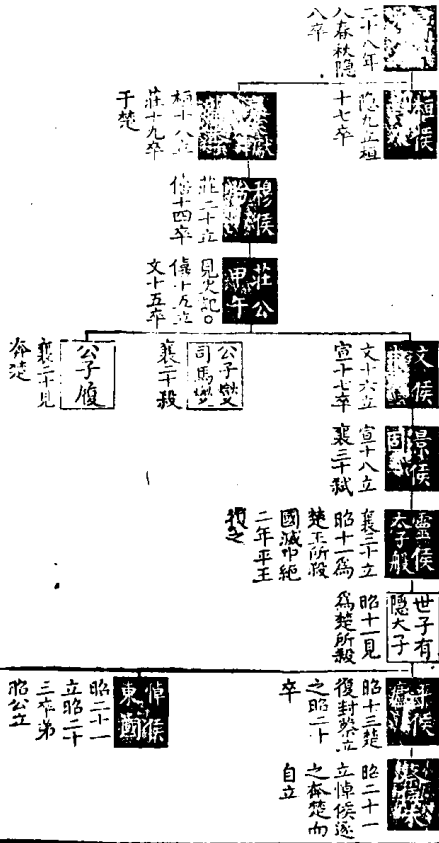 二十八年
八春秋隐
八卒
桓侯
隐九立桓
十七卒
獻
桓十八立
莊十九卒
于楚
穆侯
莊二十立
僖十四卒
莊公
甲午
見史記。
僖十五立
文十五卒
文侯
文十六立
宣十七卒
公子燮
司馬燮
襄二十殺
公子履
襄二十見
奔楚
景侯
固
宣十八立
襄三十弑
靈侯
太子般
襄三十立
昭十一爲
楚王所殺
國滅中絕
二年平王
復之
世子有
隱太子
昭十一見
爲楚所殺
平侯
廬
昭十三楚
復封蔡立
之昭二十
卒
悼侯
東國
昭二十一
立昭二十
三卒弟
昭公立
昭二十一
立悼侯逐
之奔楚而
自立